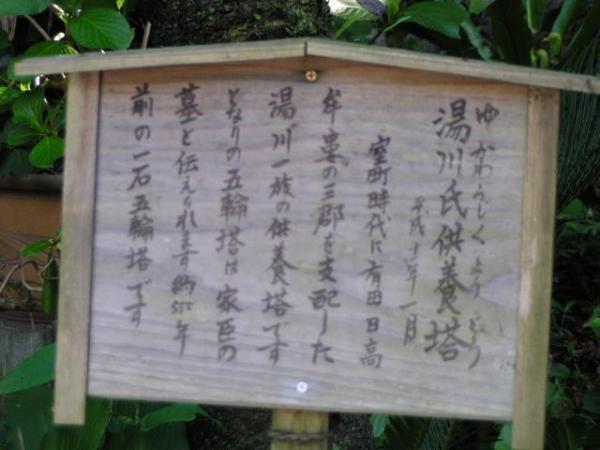 ゆかわうじくようとう
湯川氏供養塔
平成十一年一月
室町時代に有田日高
牟婁の三郡を支配した
湯川一族の供養塔です
となりの五輪塔は家臣の
墓と伝えられます約550年
前の一石五輪塔です